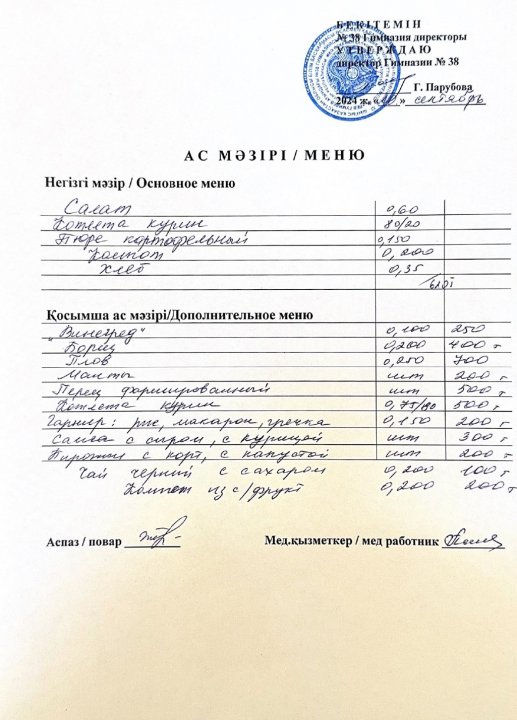 БЕКІТЕМІН
№ 38 Гимназия директоры
УТВЕРЖДАЮ
директор Гимназии № 38
Г. Парубова
2024 ж. « » сентябрь
АС МӘЗІРІ / МЕНЮ
Негізгі мәзір / Основное меню
Салат 0,60
Котлета курин 80/20
Пюре картофельный 0,150
Компот 0,200
Хлеб 0,35
Қосымша ас мәзірі/Дополнительное меню
"Винегред" 0,100 250
Борщ 0,200 400 т
Плов 0,250 700
Манты шт 200 т
Перец фаршированный шт 500 т
Котлета курин 0,75/80 500 т
Гарнир: рис, макарон, гречка 0,150 200 т
Самса с сыром, с курицей шт 300 т
Пирожки с карт, с капустой шт 200 т
Чай черний с сахаром 0,200 100 т
Компот из с/фрукт 0,200 200 т
Аспаз / повар
Мед.қызметкер / мед работник